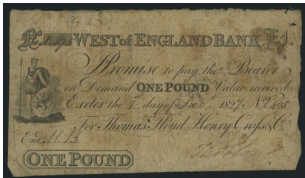 WEST of ENGLAND BANK, £1.
Promise to pay the Bearer
on Demand ONE POUND Value received
Exeter the 1 day of Dec. 1827.
For Thomas Floyd, Henry Cross & Co
Ent.
ONE POUND